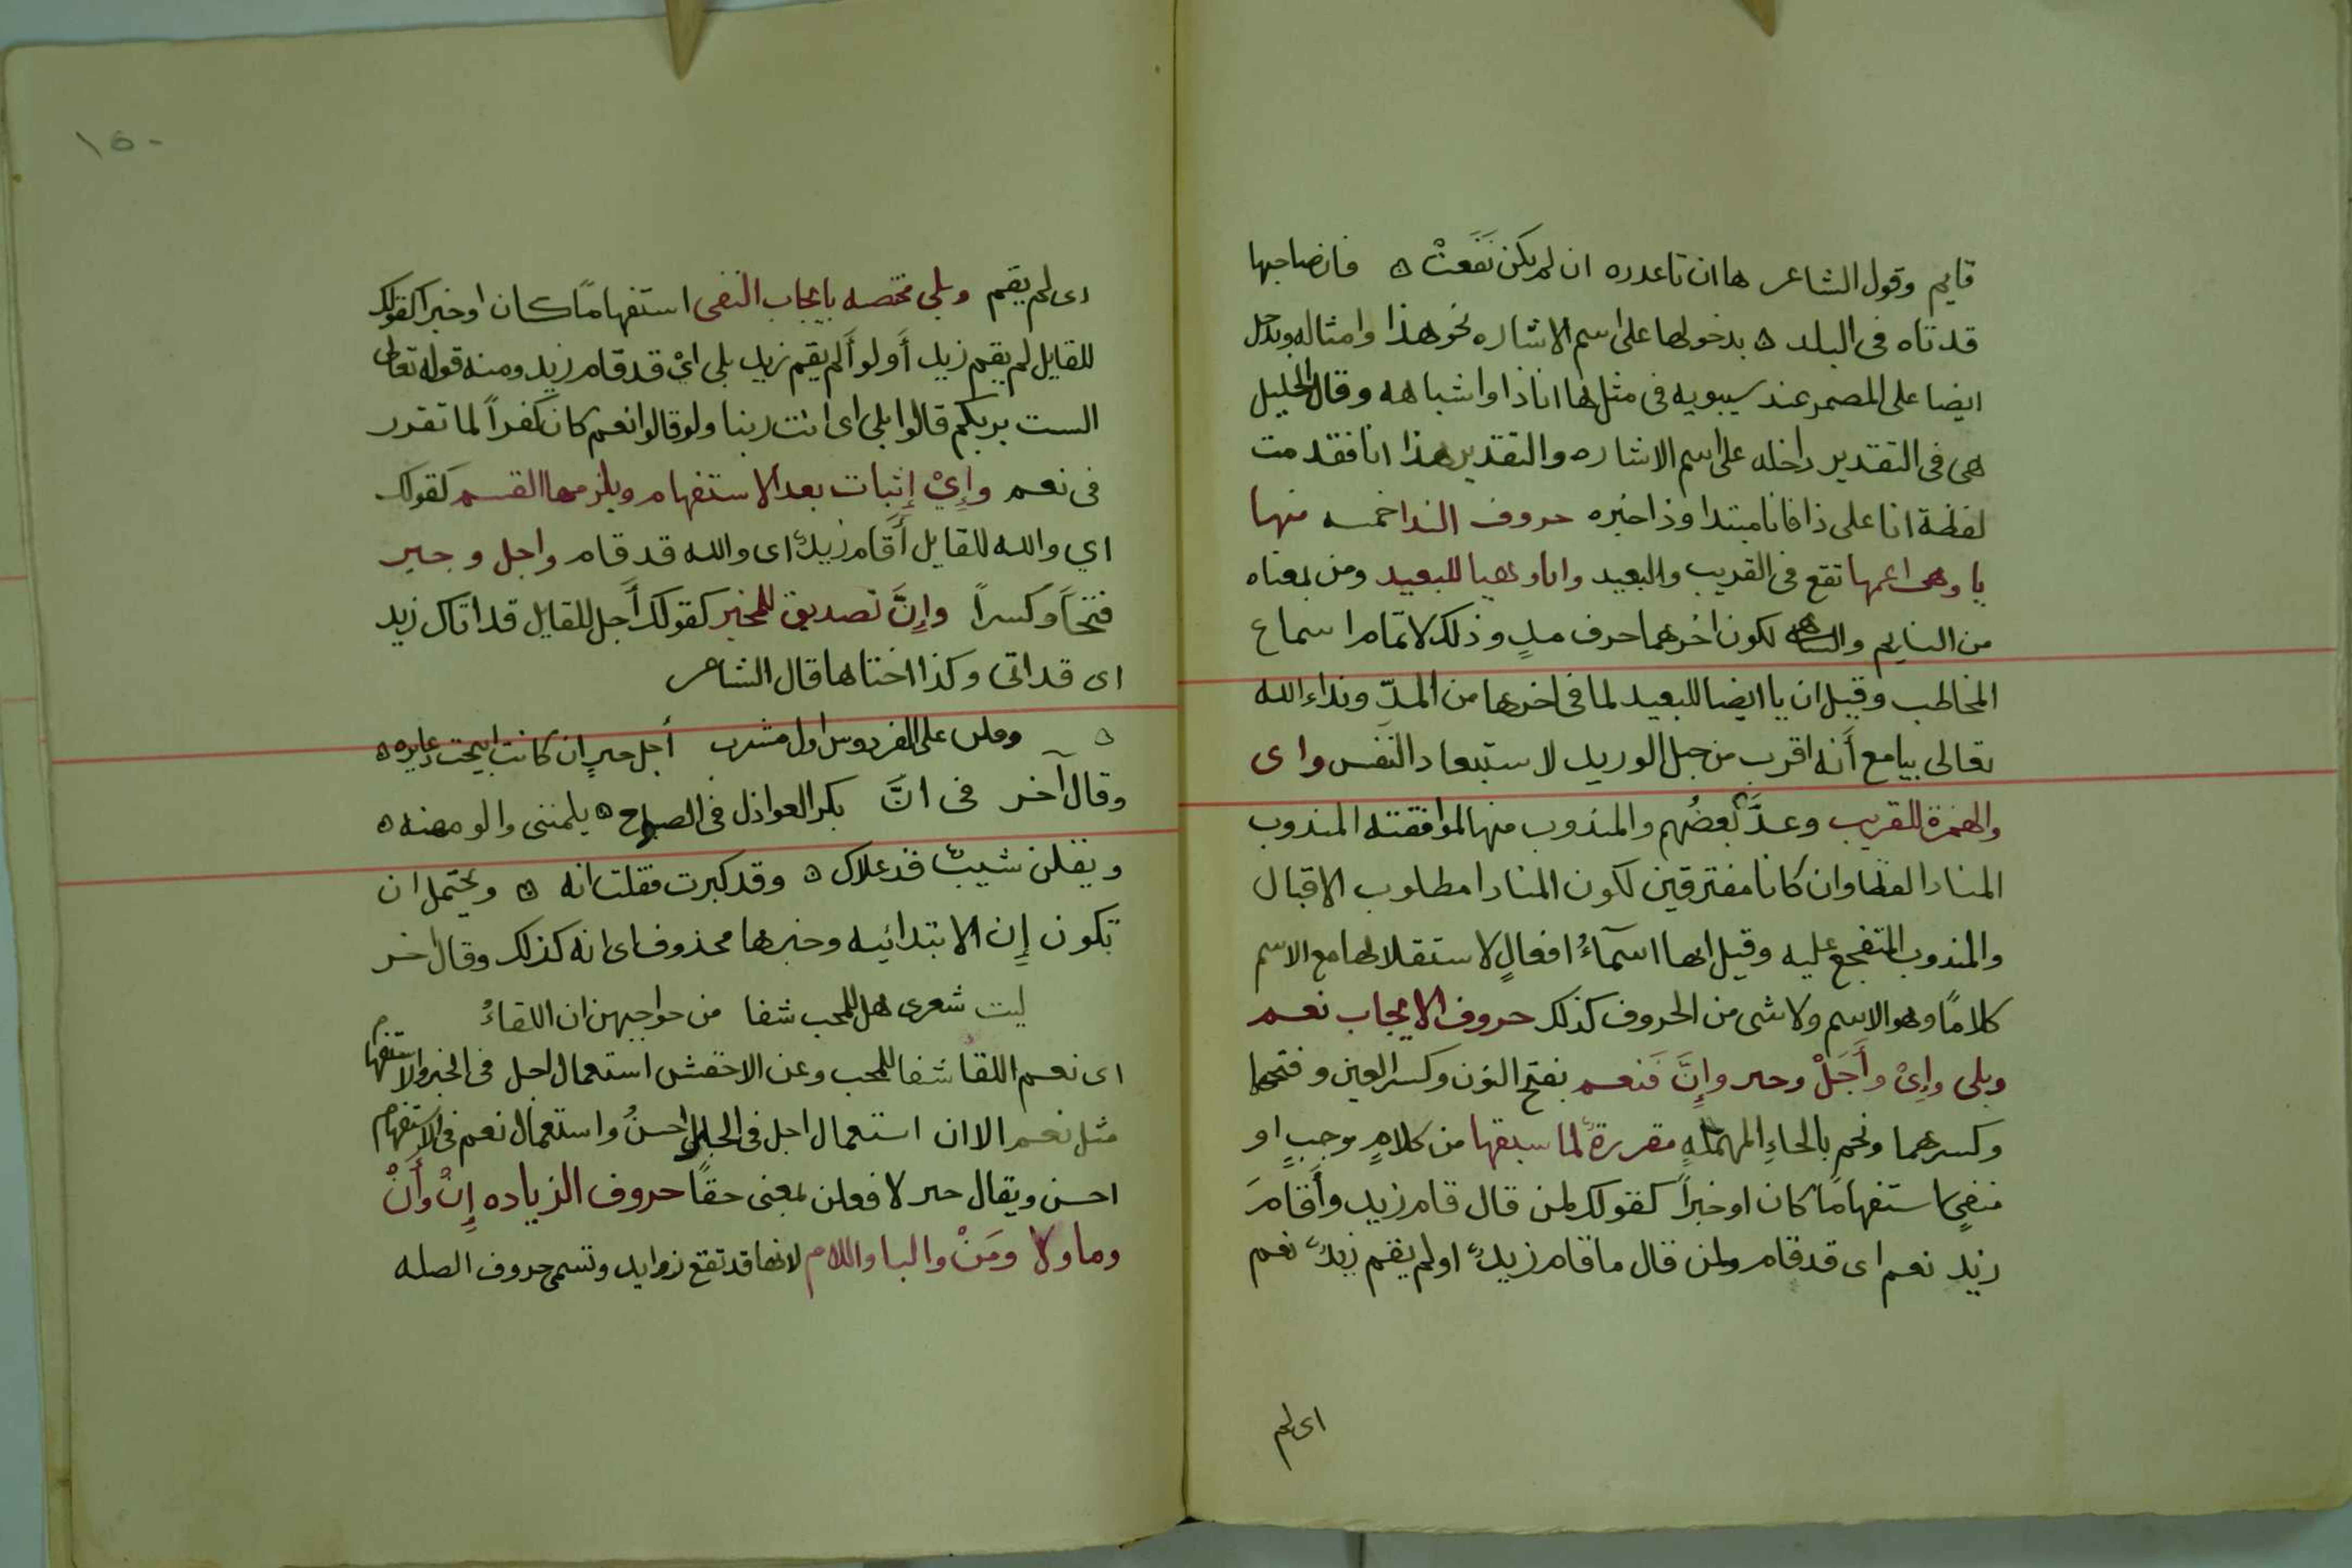 قايم وقول الشاعر ها ان تا عدره ان لم يكن نَفَعتْ ه فان صاحبها
قد تاه فى البلد ه بدخولها على اسم الاشاره نحو هذا وامثاله وتدخل
ايضا على المضمر عند سيبويه فى مثل ها انا ذا واشباهه وقال الخليل
هى فى التقدير داخله على اسم الاشاره والتقدير هذا انا فقدمت
لفظة انا على ذا فانا مبتدا وذا خبره حروف الندا خمسه منها
يا وهى اعمها تقع فى القريب والبعيد وايا وهيا للبعيد ومن بمعناه
من النايم والساهى لكون اخرهما حرف مدٍ وذلك لاتمام اسماع
المخاطب وقيل ان يا ايضا للبعيد لما فى اخرها من المدّ ونداء الله
تعالى بيا مع أنه اقرب من حبل الوريد لاستبعاد النفس واى
والهمزة للقريب وعدَّ بعضُهم والمندوب منها لموافقته المندوب
المنادا لفظا وان كانا مفترقين لكون المنادا مطلوب الاقبال
والمندوب المتفجع عليه وقيل انها اسمآءُ افعالٍ لاستقلالها مع الاسم
كلامًا وهو الاسم ولا شى من الحروف كذلك حروف الايجاب نعم
وبلى وإىْ وأَجَلْ وجير وإِنَّ فَنعم بفتح النون وكسر العين وفتحها
وكسرهما ونحم بالحاءِ المهملهِ مقررةٌ لما سبقها من كلامٍ موجبٍ او
منفىٍ استفهامًا كان او خبراً كقولك لمن قال قام زيد وأَقَامَ
زيد نعم اى قد قام ولمن قال ما قام زيدٌ او لم يقم زيدٌ نعم
اى لم
١٥٠
اى لم يقم وبلى مختصه بايجاب النفى استفهامًا كان او خبرا كقولك
للقايل لم يقم زيد أو لو أَلم يقم زيد بلى اىْ قد قام زيد ومنه قوله تعالى
الست بربكم قالوا بلى اى انت ربنا ولو قالوا نعم كان كفراً لما تقرر
فى نعم وإِىْ إثبات بعد الاستفهام ويلزمها القسم كقولك
اي والله للقايل أَقَام زيدٌ اى والله قد قام واجل وجير
فتحاً وكسراً وإِنَّ تصديق للمخبر كقولك أَجل للقايل قد اتاك زيد
اى قد اتى وكذا اختاها قال الشاعر
ه وقلن على الفردوس اول مشرب أجل جيرِ ان كانت ابيحت دعايره ه
وقال آخر فى انَّ بكر العواذل فى الصباح ه يلمننى والومهنه ه
ويقلن شيبٌ قد علاك ه وقد كبرت فقلت انه ه ويحتمل ان
تكون إِن الابتدائيه وخبرها محذوف اى انه كذلك وقال اخر
ليت شعرى هل للمحب شفا من حواجبهن ان اللقاءُ
اى نعم اللقا شفا للمحب وعن الاخفش استعمال اجل فى الخبر والاستفهام
مثل نعم الا ان استعمال اجل فى الخبر احسنُ واستعمال نعم فى الاستفهام
احسن ويقال جير لافعلن بمعنى حقًا حروف الزياده إِنْ وأَنْ
وما ولا ومَنْ والبا واللام لانها قد تقع زوايد وتسمى حروف الصله